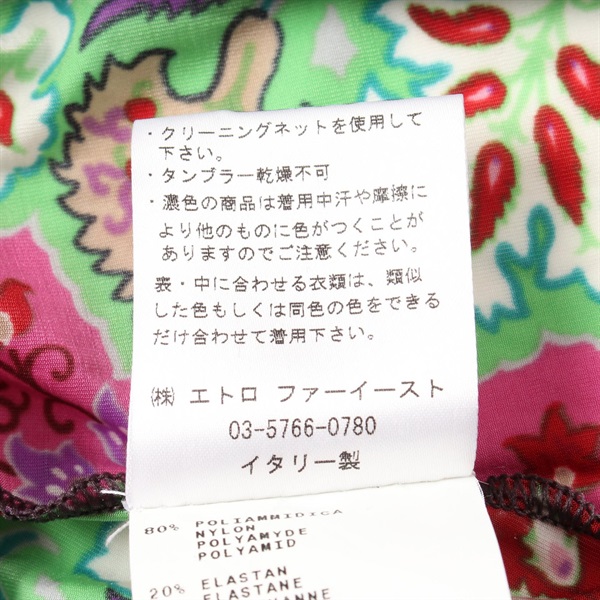 ・クリーニングネットを使用して
下さい。
・タンブラー乾燥不可
・濃色の商品は着用中汗や摩擦に
より他のものに色がつくことが
ありますのでご注意ください。
裏・中に合わせる衣類は、類似
した色もしくは同色の色をできる
だけ合わせて着用下さい。
㈱ エトロ ファーイースト
03-5766-0780
イタリー製
80% POLIAMMIDICA
NYLON
POLYAMYDE
POLYAMID
20% ELASTAN
ELASTANE